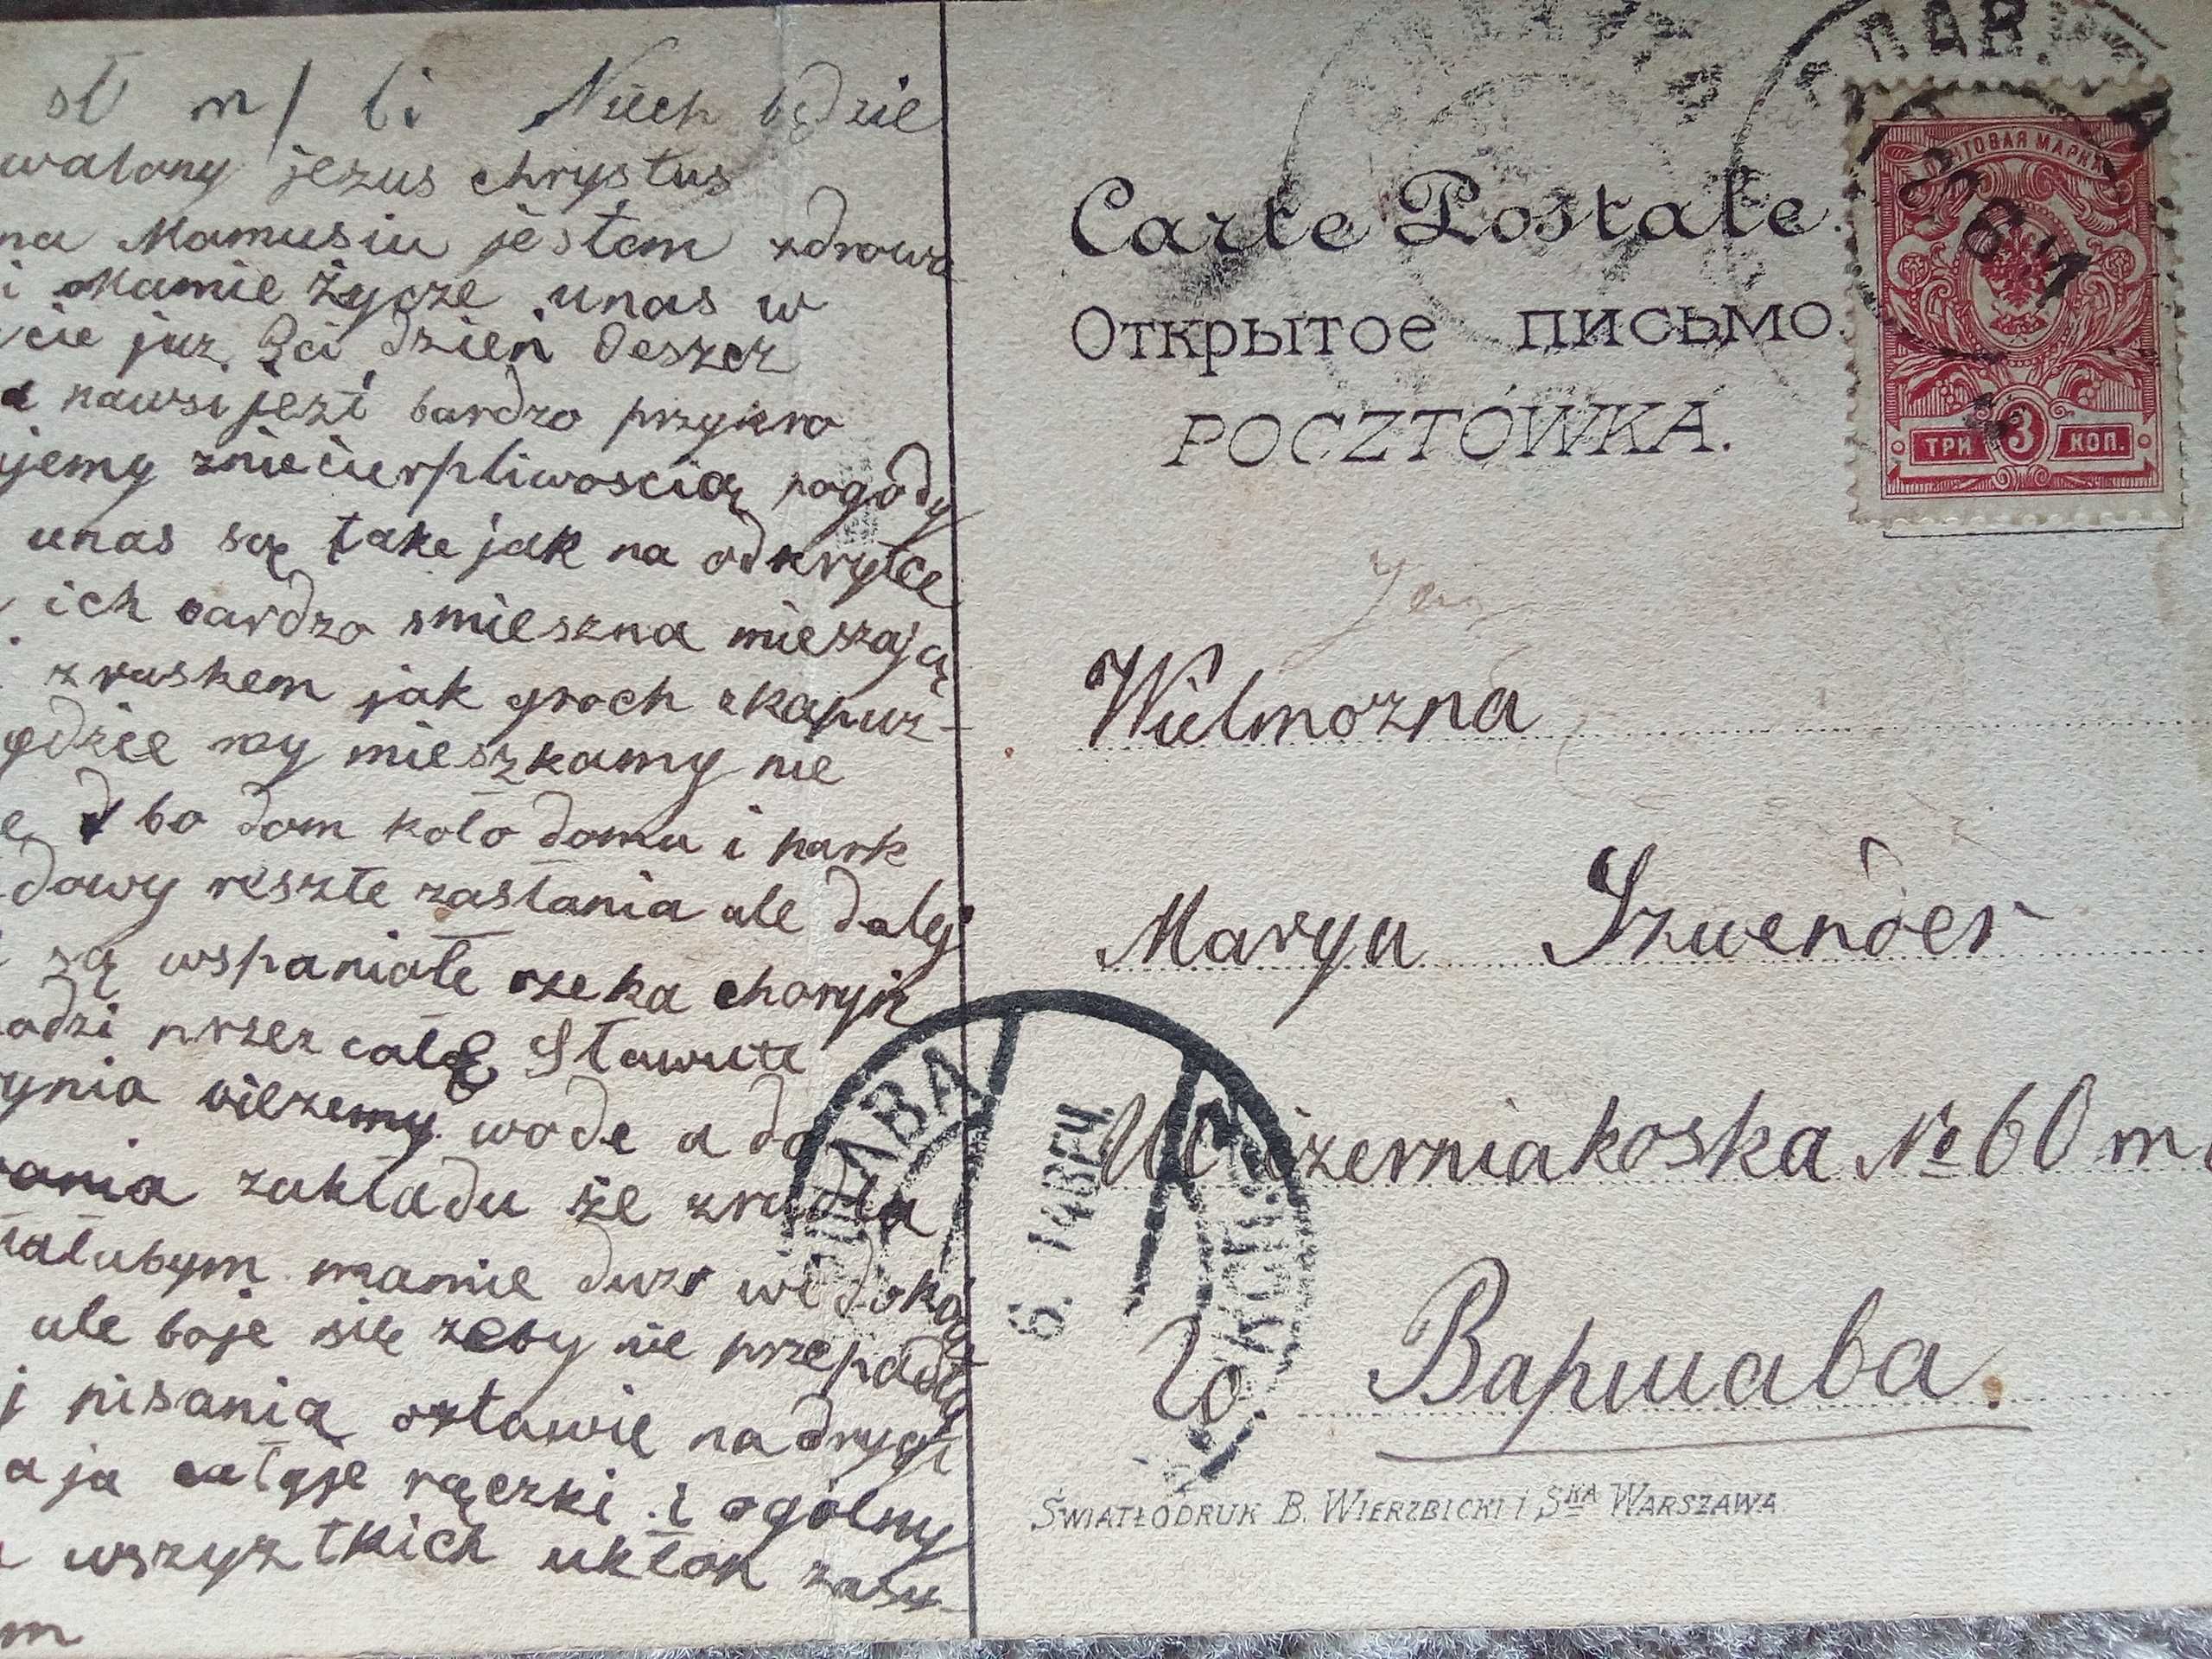 st m/ li Niech będzie
walony jezus chrystus
na Mamusiu jestem zdrowa
i Mamie życze unas w
cie juz 3ci dzień deszcz
a nawsi jezt bardzo przykro
jemy zniecierpliwoscią pogody
unas są take jak na odkrytce
ich bardzo smieszna mieszają
z ruskem jak groch zkapuz-
gdzie my mieszkamy nie
bo dom koło domu i park
dowy reszte zasłania ale dalej
są wspaniałe rzeka choryń
odzi przez całą Sławute
ynia bilzemy wode a do
ania zakładu że zrudła
łałubym mamie dużo widoków
ale boje się zeby nie przepadły
j pisania oztawie nadrugi
a ja całuje rączki i ogólny
wszyztkich ukłon zasy-
m
Carte Postale.
Открытое письмо.
POCZTÓWKA.
ПОЧТОВАЯ МАРКА
ТРИ 3 КОП.
Wielmozna
Marya Szwender
Ul Czerniakoska № 60 m
Варшава.
6. 14
ŚWIATŁODRUK B. WIERZBICKI i SKA WARSZAWA